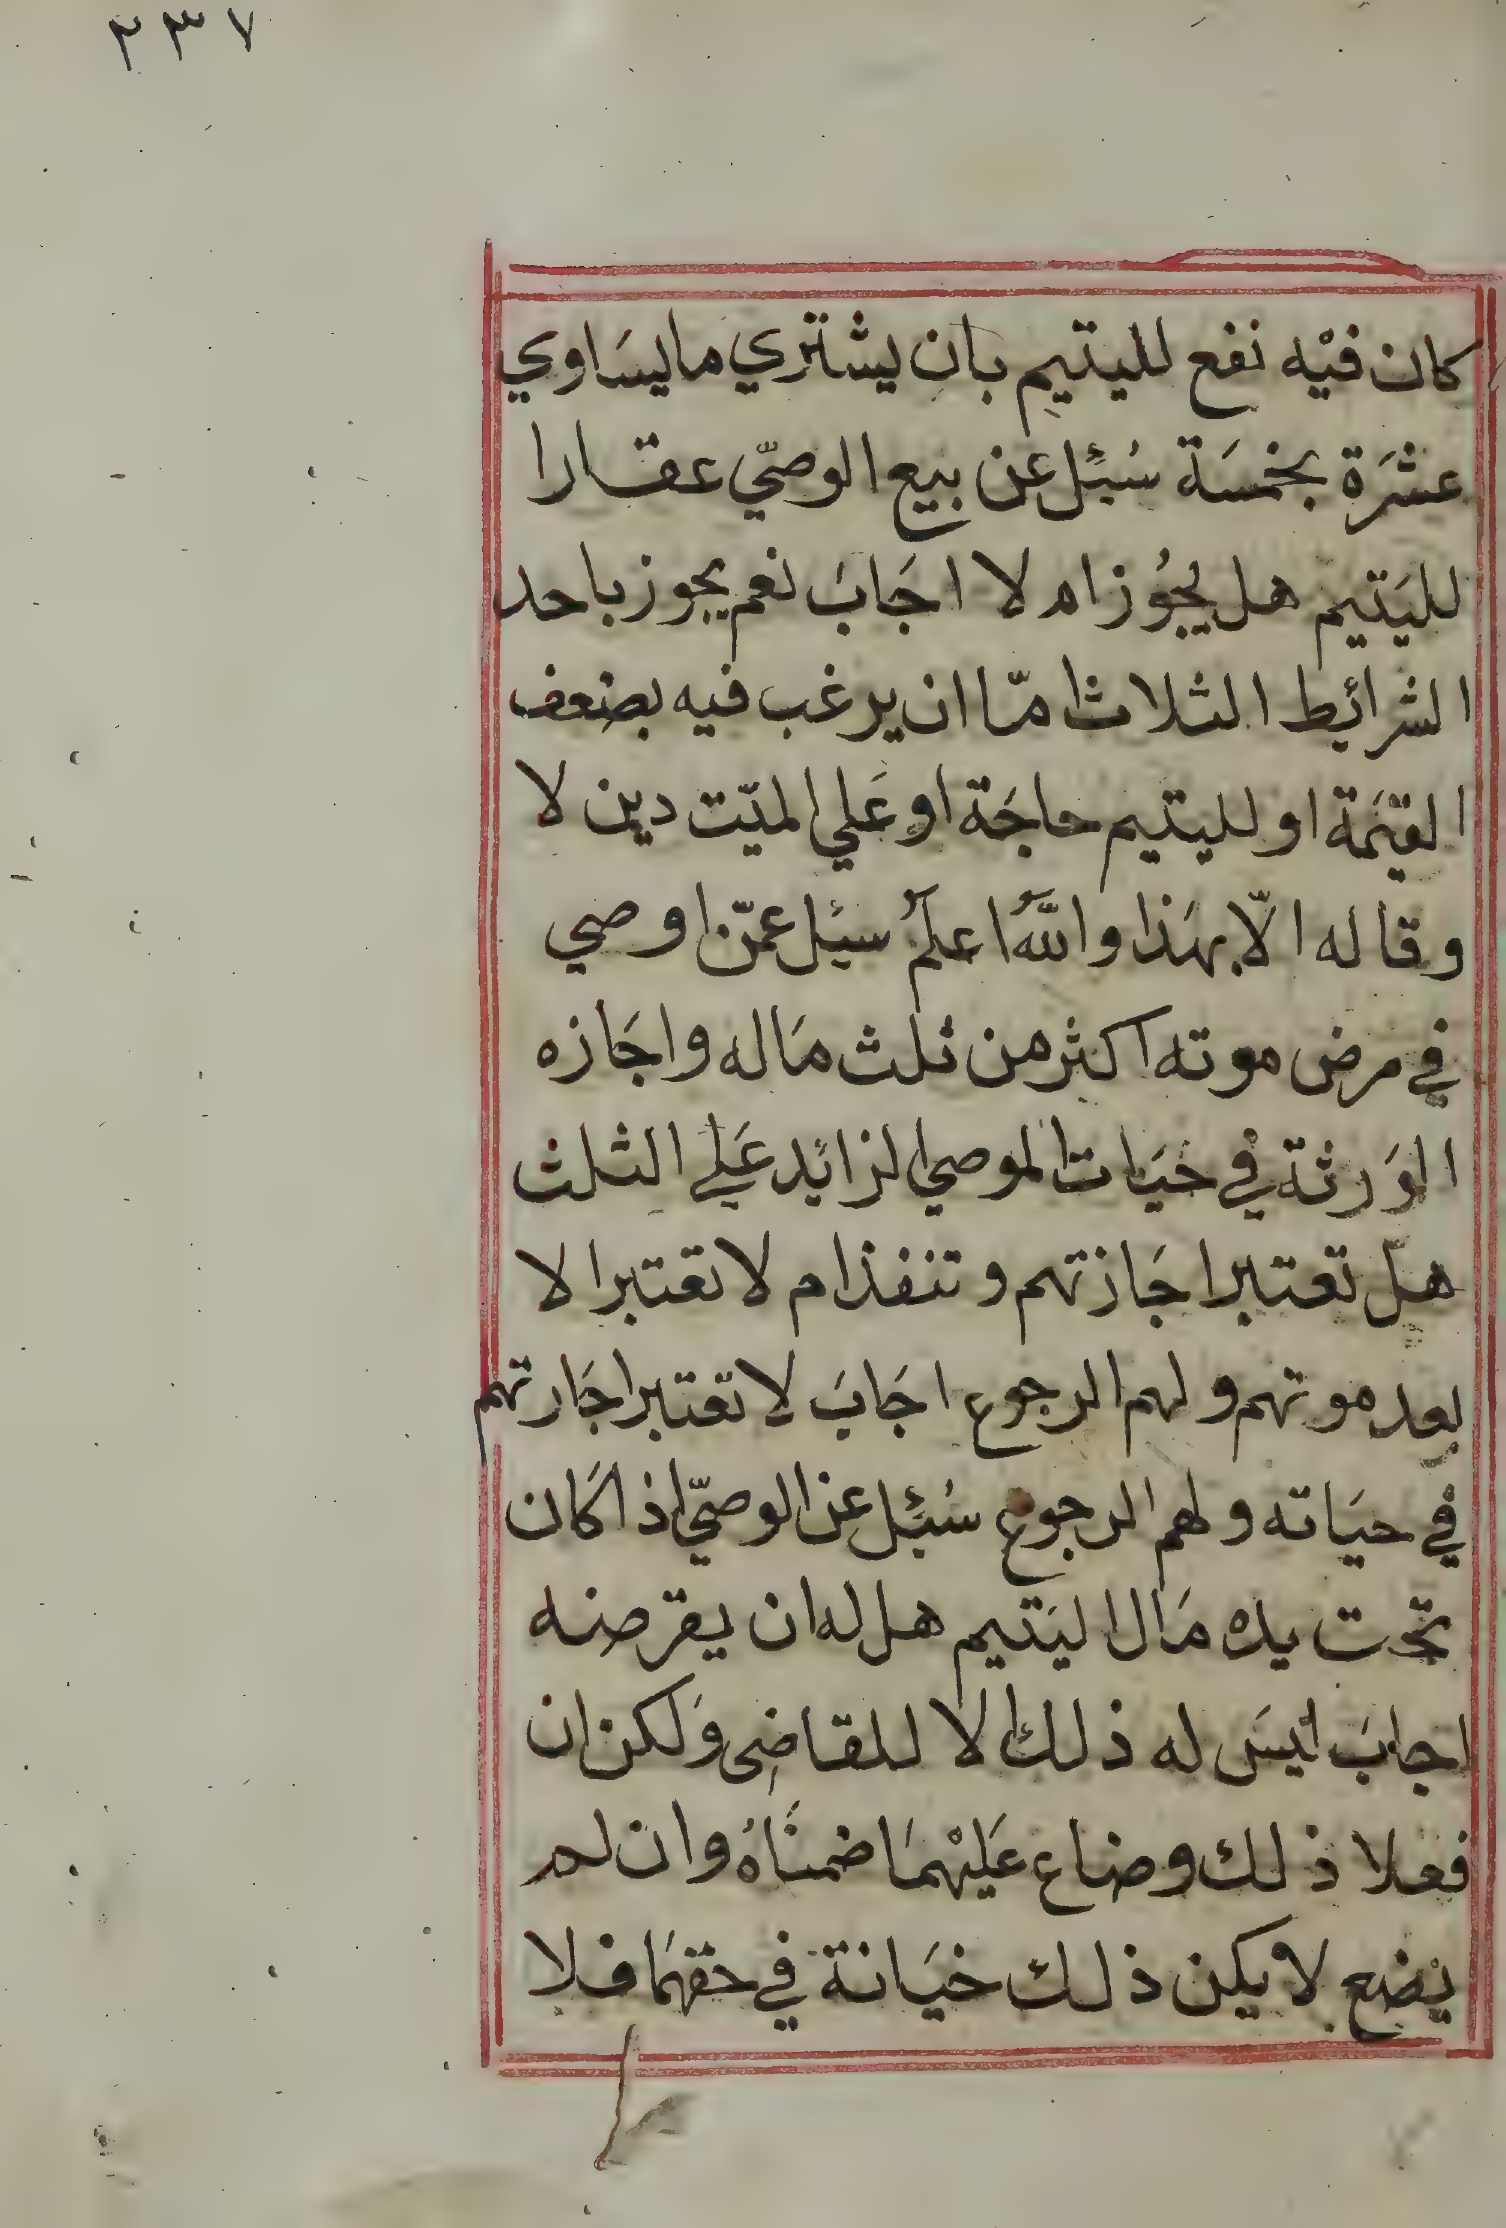 ٢٣٧
كان فيْه نفع لليتيم بان يشتري ما يسَاوي
عشَرة بخمسَة سُئِل عن بيع الوصيّ عقارا
لليَتيم هل يجوُز ام لا اجَابَ نعم يجوز باحد
الشرائط الثلاث امّا ان يرغب فيه بضعف
القيَمة او لليتيم حاجَة او عَلي الميّت دين لا
وقا له الّا بهَذا واللّٰهُ اعلمُ سئل عمّن اوصي
في مرض موته اكثر من ثلث مَاله واجَازه
الوَرثة في حيَات الموصي الزائد عَلي الثلث
هل تعتبر اجَازتهم وتنفذ ام لا تعتبر الا
بعد موتهم ولهم الرجوع اجَابَ لا تعتبر اجَارتهم
في حيَاته ولهم الرجوع سُئِل عن الوصيّ اذا كَان
تحت يده مَال اليَتيم هل له ان يقرضه
اجابَ ليسَ له ذلك الا للقاضِى وَلكن ان
فعلا ذلك وضاع عَليْهمَا ضمنَاهُ وان لم
يضِع لا يكن ذلك خيَانة في حقهمَا فلا